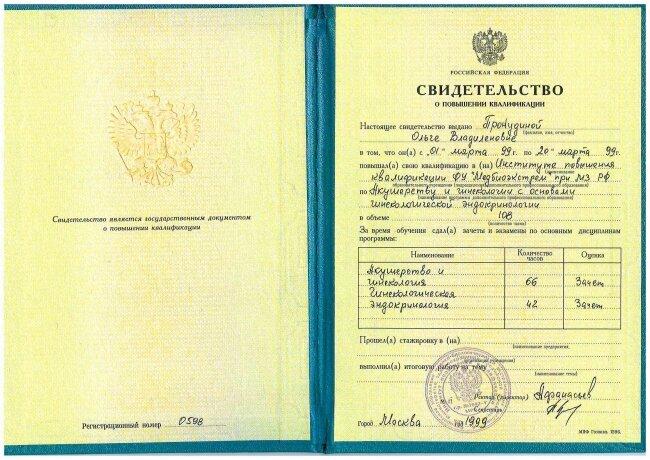 Свидетельство является государственным документом
о повышении квалификации
Регистрационный номер 0598
РОССИЙСКАЯ ФЕДЕРАЦИЯ
СВИДЕТЕЛЬСТВО
О ПОВЫШЕНИИ КВАЛИФИКАЦИИ
Настоящее свидетельство выдано Пронудиной
(фамилия, имя, отчество)
Ольге Владиленовне
в том, что он(а) с „01" марта 99 г. по „20" марта 99 г.
повышал(а) свою квалификацию в (на) Институте повышения
(наименование
квалификации ФУ "Медбиоэкстрем" при МЗ РФ
образовательного учреждения (подразделения) дополнительного профессионального образования)
по Акушерству и гинекологии с основами
гинекологической эндокринологии
в объеме 108
(количество часов)
За время обучения сдал(а) зачеты и экзамены по основным дисциплинам
программы:
Наименование Количество часов Оценка
Акушерство и
гинекология 66 Зачет
Гинекологическая
эндокринология 42 Зачет
Прошел(а) стажировку в (на)
(наименование предприятия,
организации, учреждения)
выполнил(а) итоговую работу на тему
(наименование темы)
Ректор (директор) Афанасьев
Секретарь
Город Москва год 1999
МПФ Гознака. 1996.